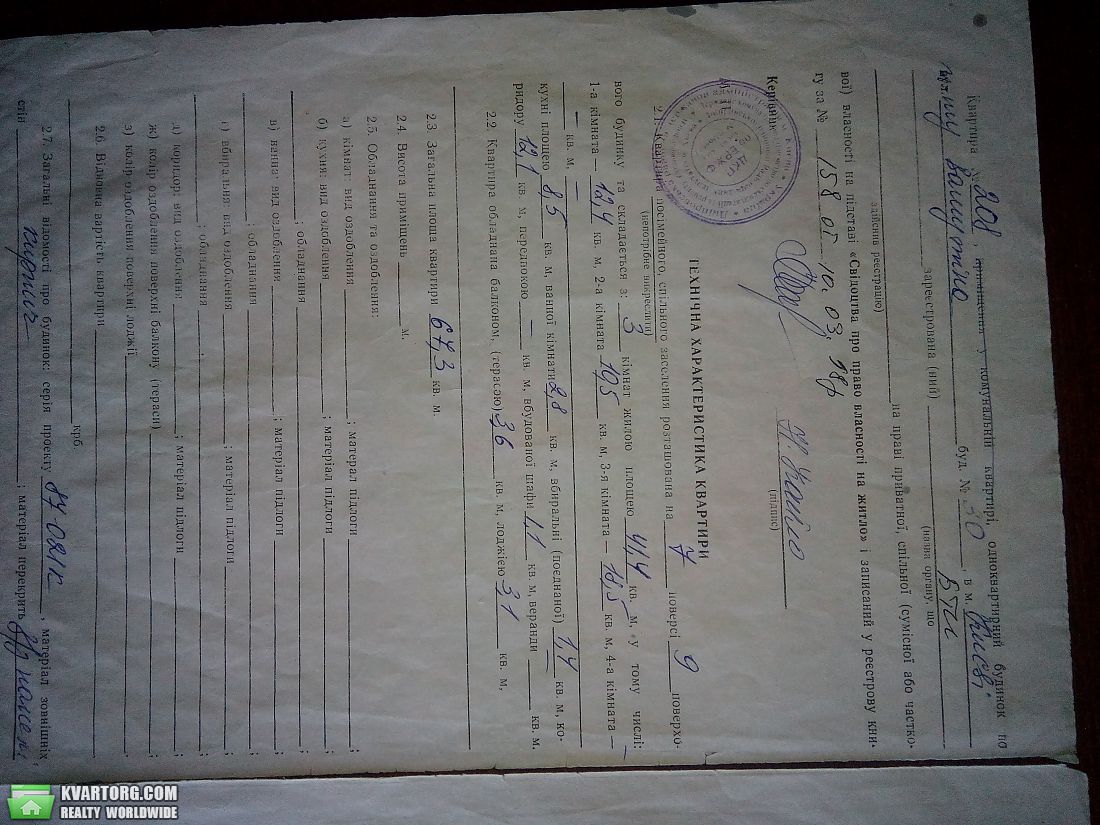 Квартира № 208, приміщення у комунальній квартирі, одноквартирний будинок по
Ватутіна буд. № 30, в м. Києві
зареєстрована (ний) БТІ
(назва органу, що
здійснив реєстрацію)
на праві приватної, спільної (сумісної або частко-
вої) власності на підставі «Свідоцтва про право власності на житло» і записаний у реєстрову кни-
гу за №
Керівник
(підпис)
ТЕХНІЧНА ХАРАКТЕРИСТИКА КВАРТИРИ
2.1. Квартира посімейного, спільного заселення розташована на 7 поверсі 9 поверхо-
(непотрібне викреслити)
вого будинку та складається з: 3 кімнат жилою площею 41,4 кв. м, у тому числі:
1-а кімната — кв. м, 2-а кімната кв. м, 3-я кімната — кв. м, 4-а кімната —
— кв. м, —
кухні площею 8,5 кв. м, ванної кімнати 2,8 кв. м, вбиральні (поєднаної) 1,4 кв. м, ко-
ридору 12,1 кв. м, передпокою — кв. м, вбудованої шафи 1,1 кв. м, веранди — кв. м.
2.2. Квартира обладнана балконом, (терасою) 3,6 кв. м, лоджією 3,1 кв. м,
2.3 Загальна площа квартири 67,3 кв. м
2.4. Висота приміщень м.
2.5. Обладнання та оздоблення:
а) кімнат: вид оздоблення ; матерал підлоги ;
б) кухня: вид оздоблення ; матеріал підлоги ;
; обладнання ;
в) ванна: вид оздоблення ; матеріал підлоги ;
; обладнання ;
г) вбиральня: вид оздоблення ; матеріал підлоги ;
; обладнання ;
д) коридор: вид оздоблення: ; матеріал підлоги ;
ж) колір оздоблення поверхні балкону (тераси) ;
з) колір оздоблення поверхні лоджії ;
2.6. Відновна вартість квартири крб.
2.7. Загальні відомості про будинок: серія проекту 87-021К, матеріал зовнішніх
стін кирпич ; матеріал перекрить
KVARTORG.COM
REALTY WORLDWIDE